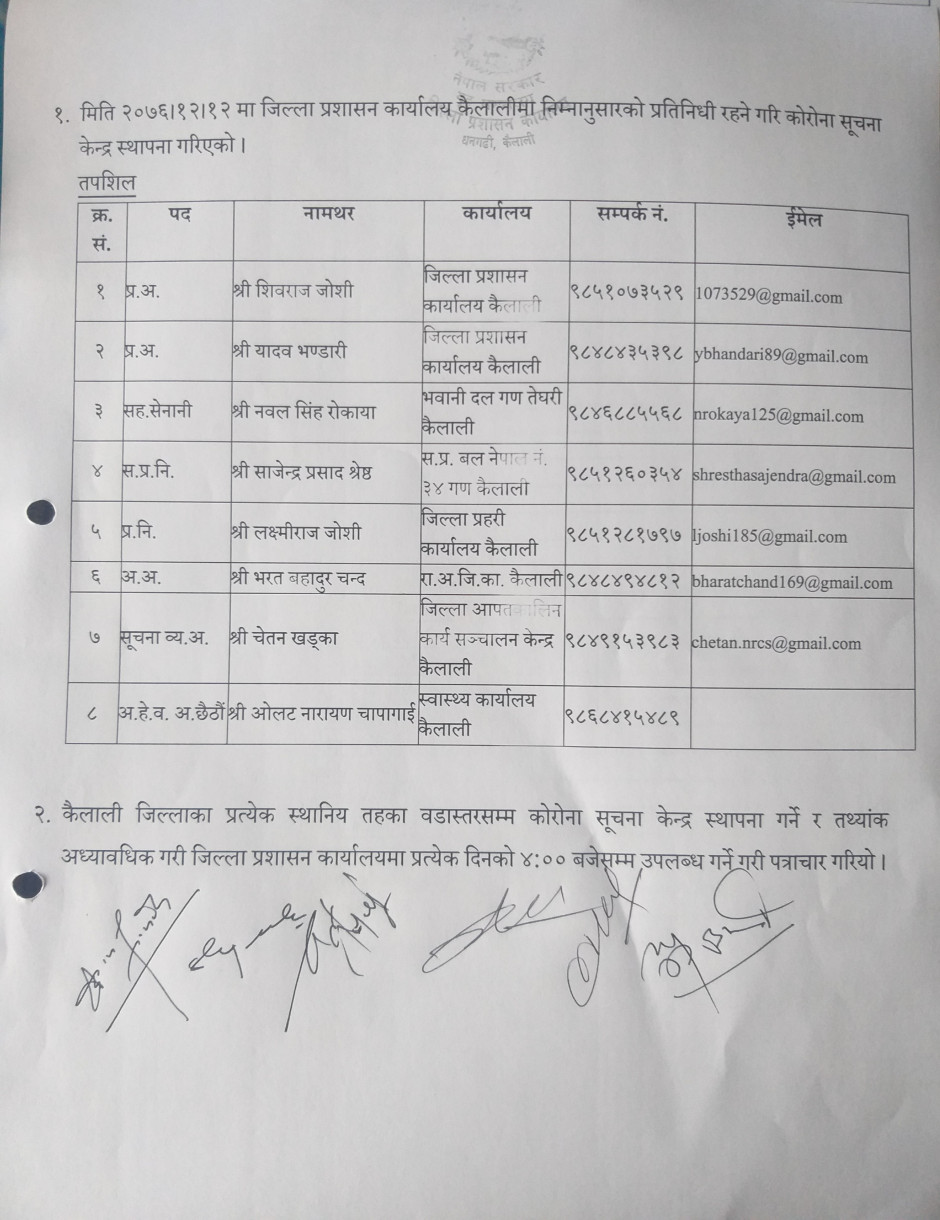 नेपाल सरकार
प्रशासन
धनगढी, कैलाली
१. मिति २०७६।१२।१२ मा जिल्ला प्रशासन कार्यालय कैलालीमा निम्नानुसारको प्रतिनिधी रहने गरि कोरोना सूचना
केन्द्र स्थापना गरिएको ।
तपशिल
क्र. सं. पद नामथर कार्यालय सम्पर्क नं. ईमेल
१ प्र.अ. श्री शिवराज जोशी जिल्ला प्रशासन कार्यालय कैलाली ९८५१०७३५२९ 1073529@gmail.com
२ प्र.अ. श्री यादव भण्डारी जिल्ला प्रशासन कार्यालय कैलाली ९८४८४३५३९८ ybhandari89@gmail.com
३ सह.सेनानी श्री नवल सिंह रोकाया भवानी दल गण तेघरी कैलाली ९८४६८८५५६८ nrokaya125@gmail.com
४ स.प्र.नि. श्री साजेन्द्र प्रसाद श्रेष्ठ स.प्र. बल नेपाल नं. ३४ गण कैलाली ९८५१२६०३५४ shresthasajendra@gmail.com
५ प्र.नि. श्री लक्ष्मीराज जोशी जिल्ला प्रहरी कार्यालय कैलाली ९८५१२८१७९७ ljoshi185@gmail.com
६ अ.अ. श्री भरत बहादुर चन्द रा.अ.जि.का. कैलाली ९८४८४९४८१२ bharatchand169@gmail.com
७ सूचना व्य.अ. श्री चेतन खड्का जिल्ला आपतकालिन कार्य सञ्चालन केन्द्र कैलाली ९८४९१५३९८३ chetan.nrcs@gmail.com
८ अ.हे.व. अ.छैठौं श्री ओलट नारायण चापागाई स्वास्थ्य कार्यालय कैलाली ९८६८४१५४८९
२. कैलाली जिल्लाका प्रत्येक स्थानिय तहका वडास्तरसम्म कोरोना सूचना केन्द्र स्थापना गर्ने र तथ्यांक
अध्यावधिक गरी जिल्ला प्रशासन कार्यालयमा प्रत्येक दिनको ४:०० बजेसम्म उपलब्ध गर्ने गरी पत्राचार गरियो ।